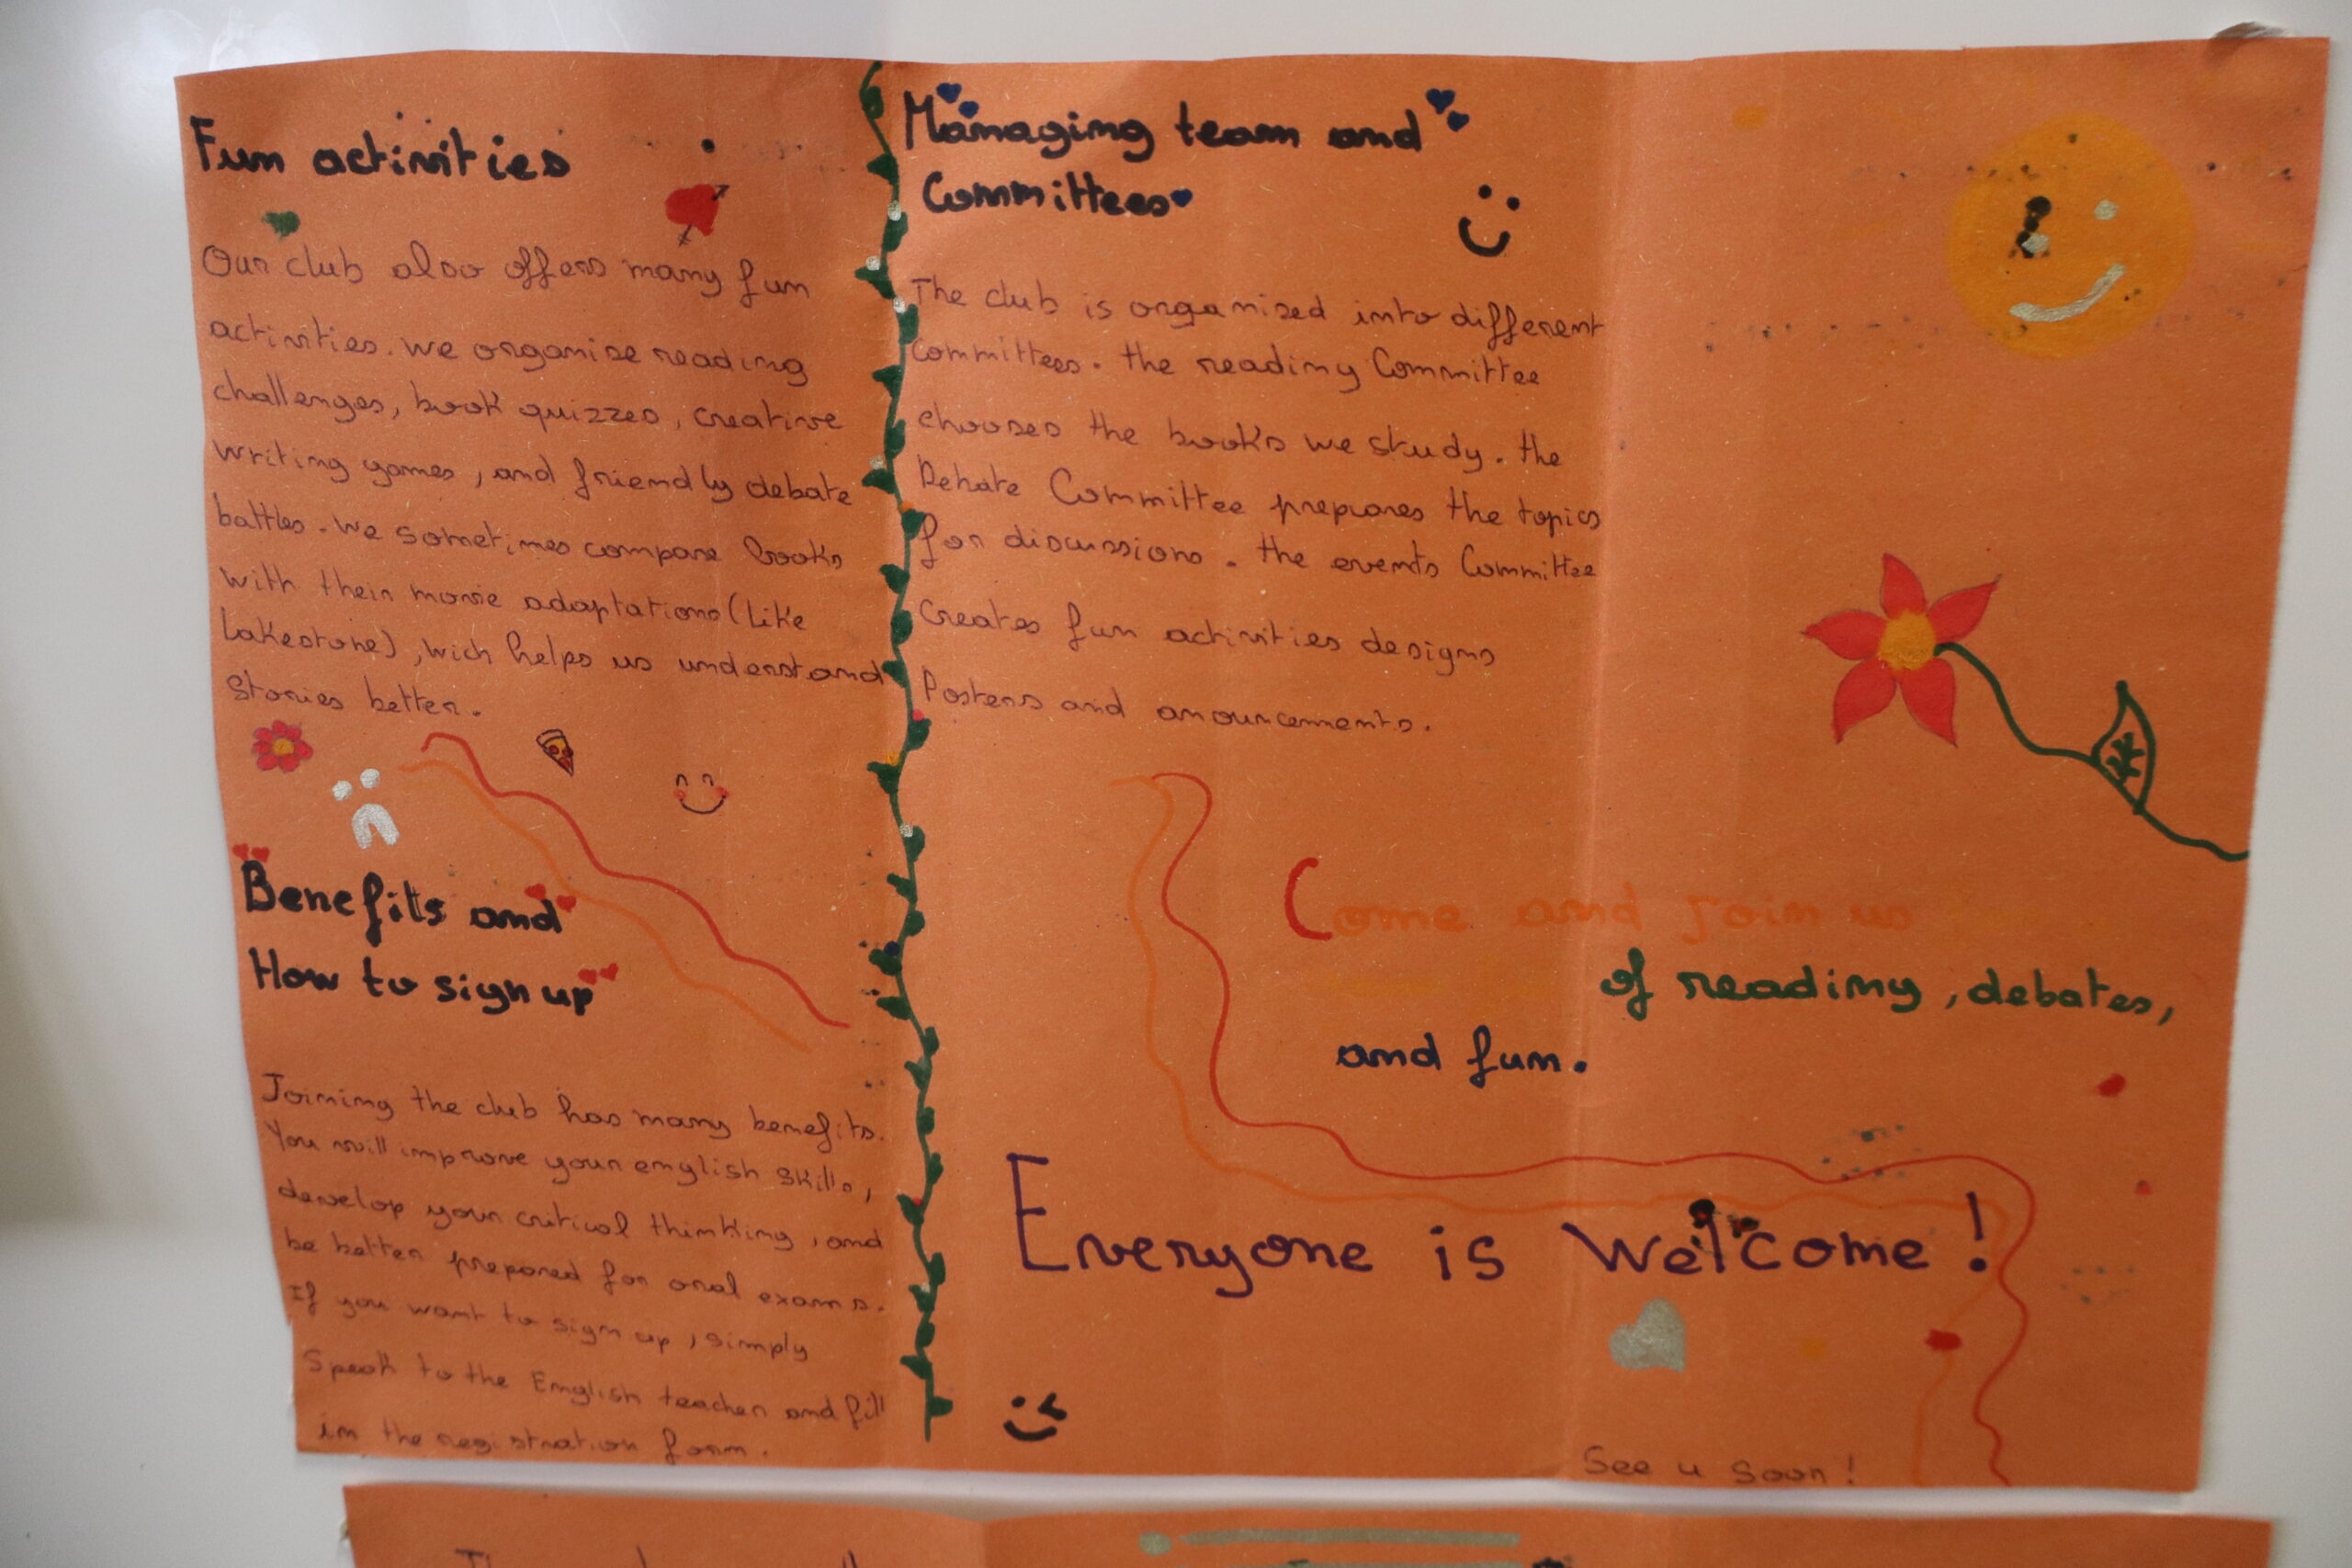 Fun activities
Our club also offers many fun
activities. we organise reading
challenges, book quizzes, creative
writing games, and friendly debate
battles. we sometimes compare books
with their movie adaptations (like
Lakestone), wich helps us understand
stories better.
Benefits and
How to sign up
Joining the club has many benefits.
You will improve your english skills,
develop your critical thinking, and
be better prepared for oral exams.
If you want to sign up, simply
Speak to the English teacher and fill
in the registration form.
Managing team and
Committees
The club is organised into different
committees. the reading Committee
chooses the books we study. the
Debate Committee prepares the topics
for discussions. the events Committee
Creates fun activities designs
Posters and anouncements.
Come and Join us
of reading, debates,
and fun.
Everyone is Welcome!
See u soon!